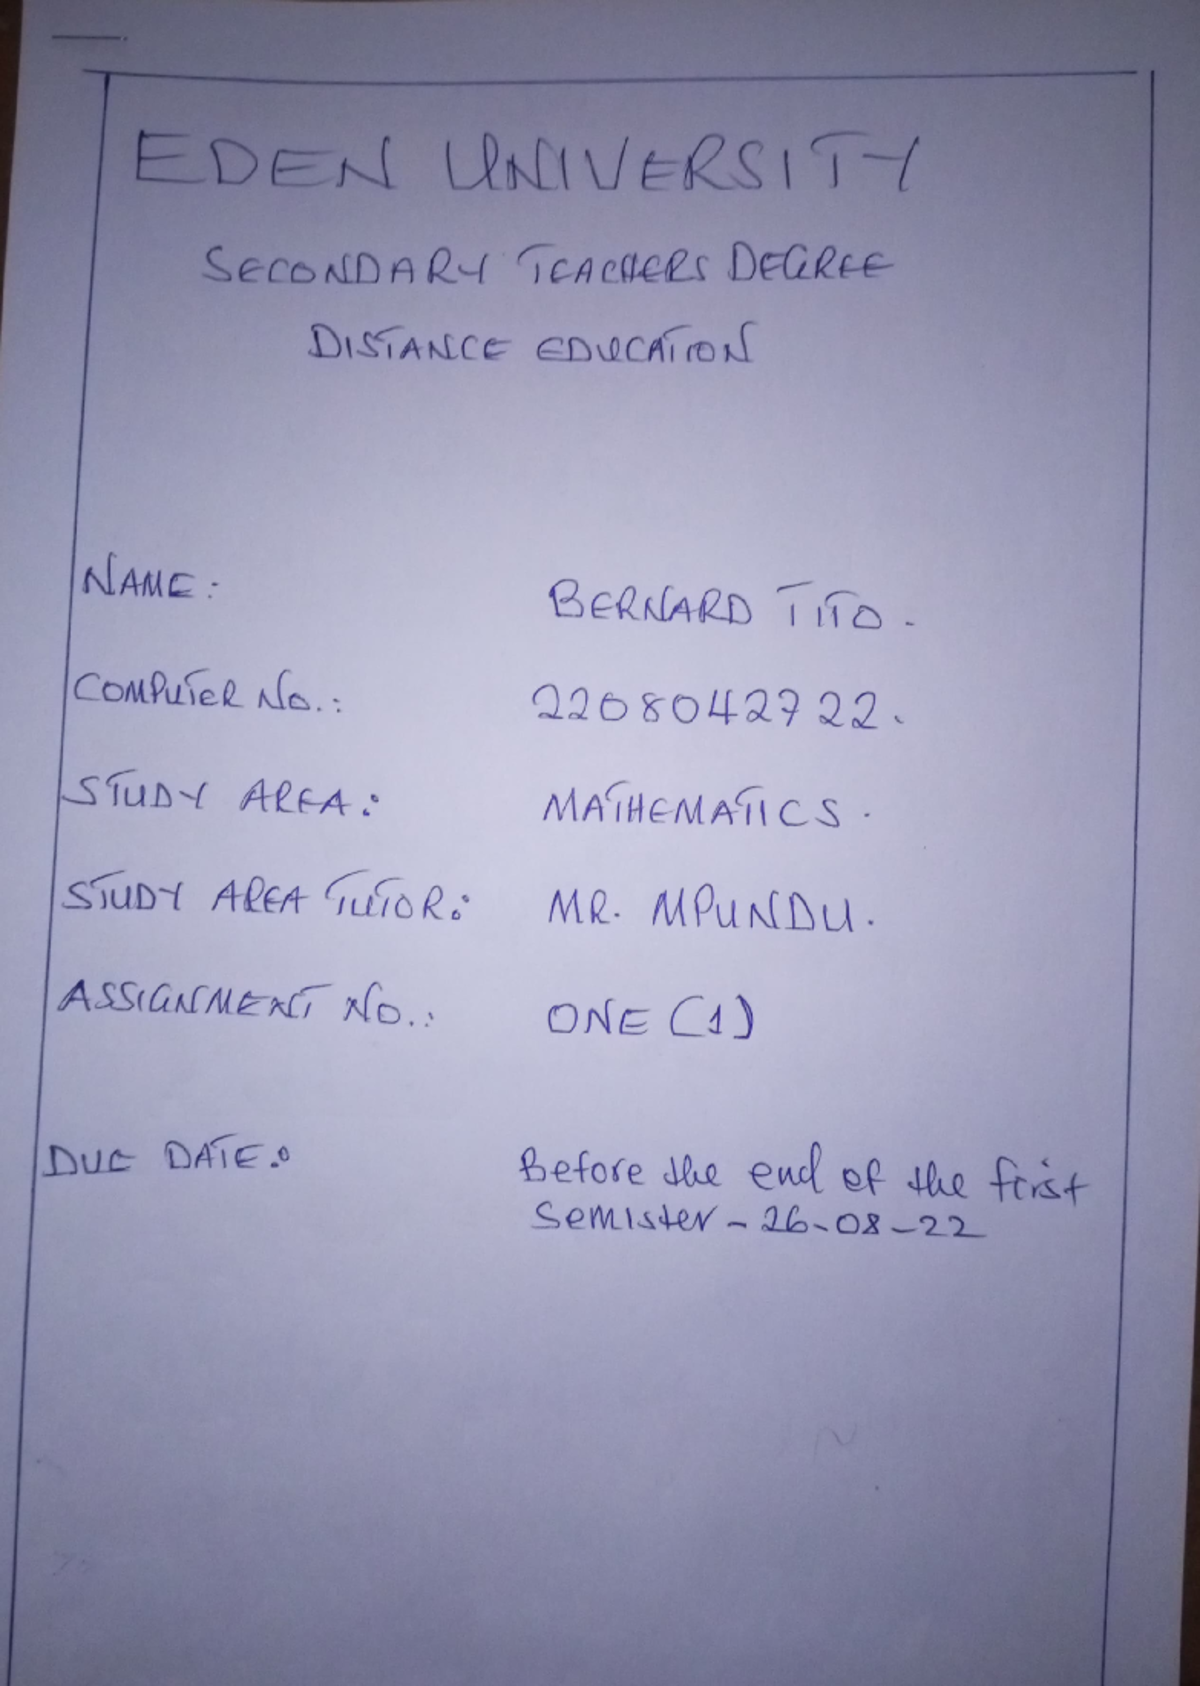 EDEN UNIVERSITY
SECONDARY TEACHERS DEGREE
DISTANCE EDUCATION
NAME: BERNARD TITO.
COMPUTER No.: 2208042722.
STUDY AREA: MATHEMATICS.
STUDY AREA TUTOR: MR. MPUNDU.
ASSIGNMENT NO.: ONE (1)
DUE DATE: Before the end of the first
Semister - 26-08-22